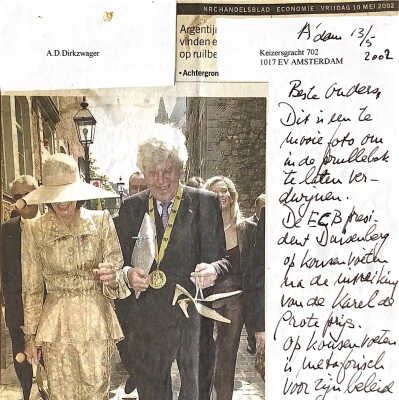 NRCHANDELSBLAD ECONOMIE VRIJDAG 10 MEI 2002
Argentij
vinden e
op ruilbe
• Achtergron
A.D. Dirkzwager
Keizersgracht 702
1017 EV AMSTERDAM
A'dam 13/5
2002
Beste ouders,
Dit is een te
mooie foto om
in de prullebak
te laten ver-
dwijnen.
De ECB presi-
dent Duisenberg
op kousevoeten
na de uitreiking
van de Karel de
Grote prijs.
op kousevoeten
is metaforisch
voor zijn beleid